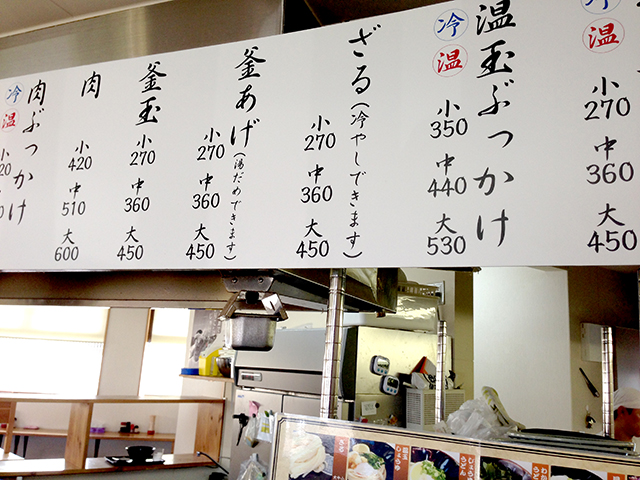 冷
温
小
270
中
360
大
450
温玉ぶっかけ
冷
温
小
350
中
440
大
530
ざる(冷やしできます)
小
270
中
360
大
450
釜あげ(湯だめできます)
小
270
中
360
大
450
釜玉
小
270
中
360
大
450
肉
小
420
中
510
大
600
肉ぶっかけ
冷
温
小
ざる
しょうゆ
うどん